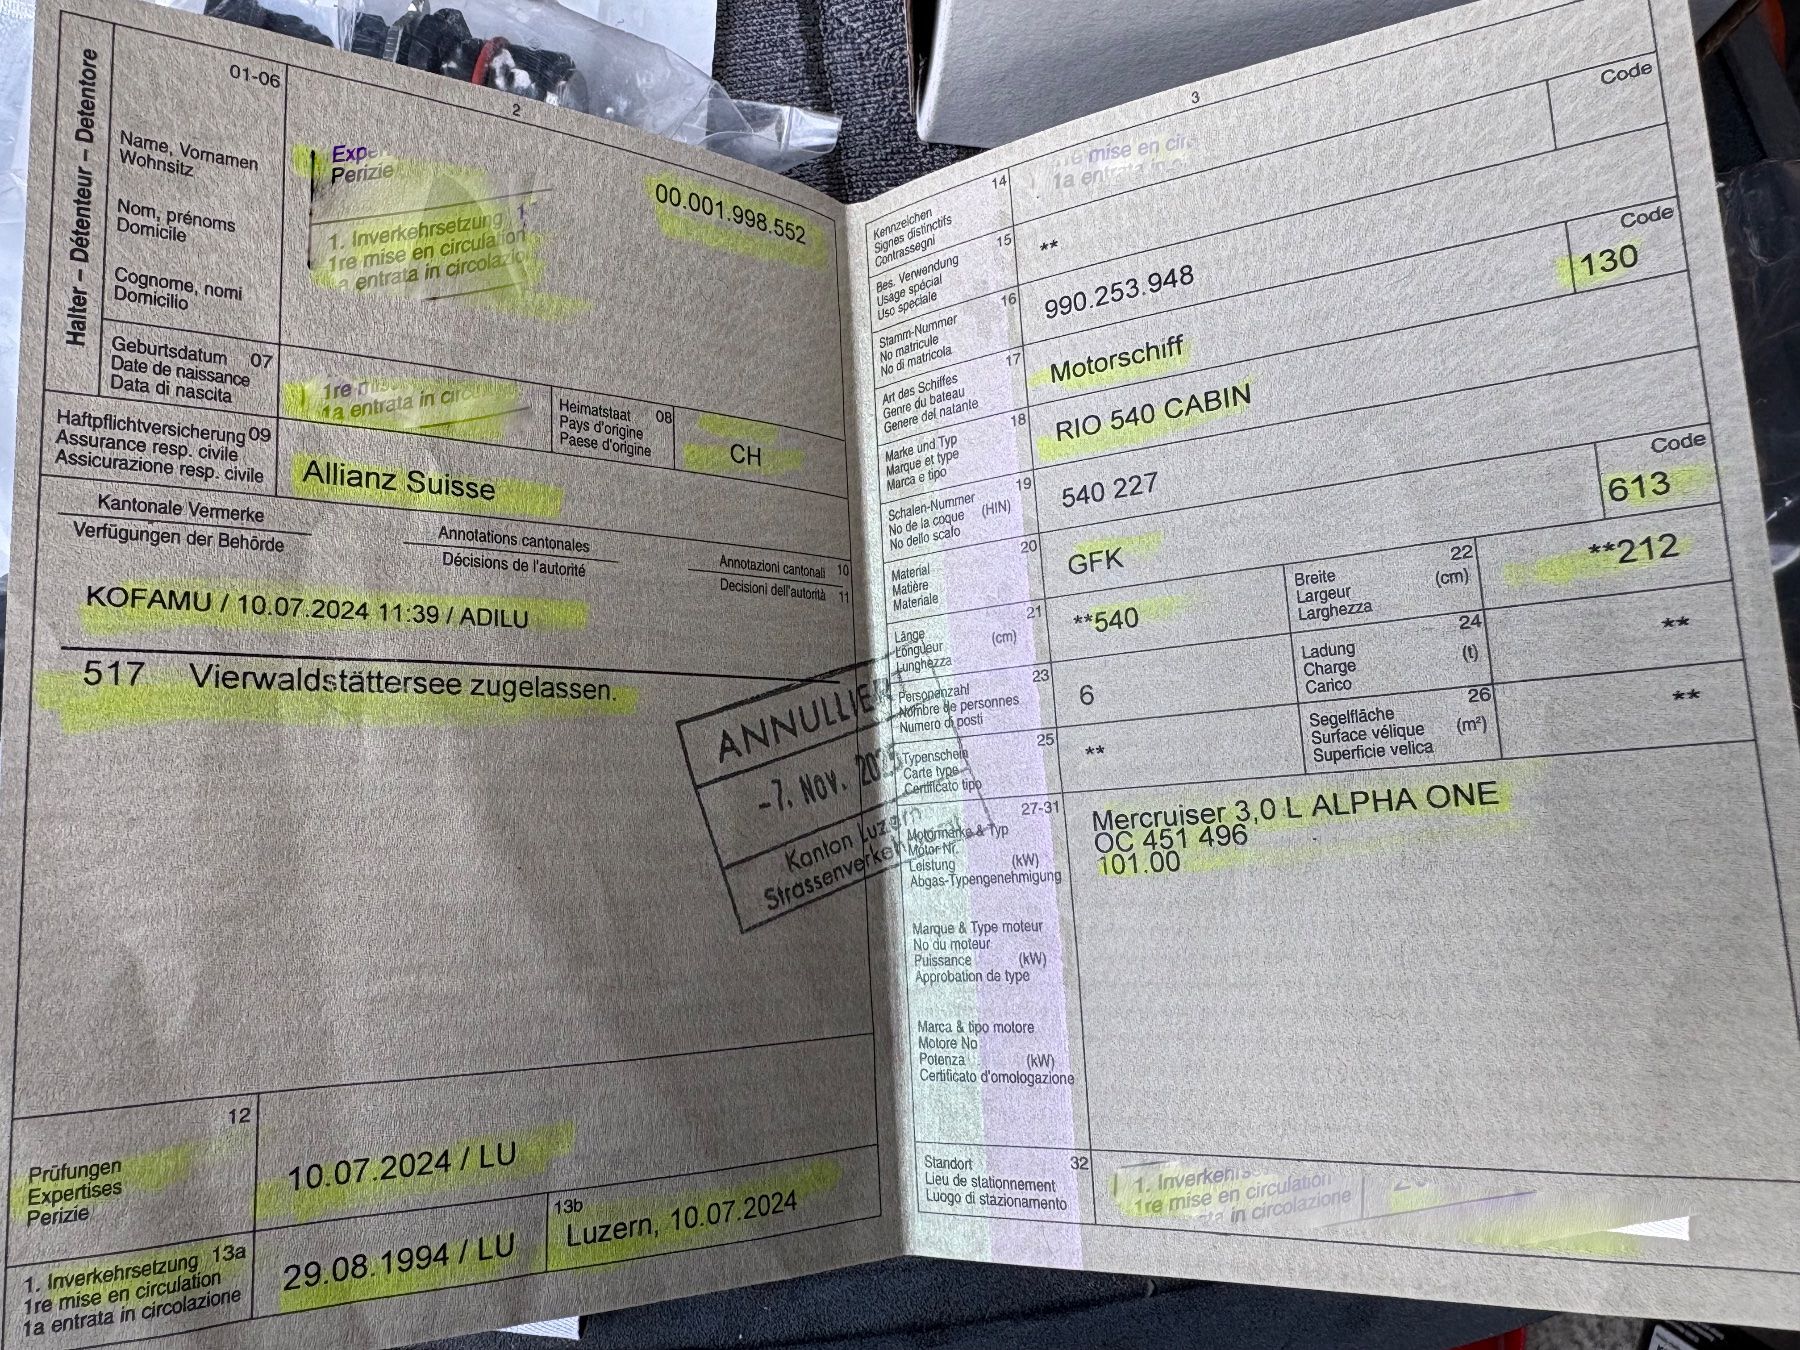 2
01-06
Halter – Détenteur – Detentore
Name, Vornamen
Wohnsitz
Nom, prénoms
Domicile
Cognome, nomi
Domicilio
Perizie
1. Inverkehrsetzung
1re mise en circulation
a entrata in circolazio
00.001.998.552
Geburtsdatum 07
Date de naissance
Data di nascita
1re
1a entrata in
Heimatstaat 08
Pays d'origine
Paese d'origine
CH
Haftpflichtversicherung 09
Assurance resp. civile
Assicurazione resp. civile
Allianz Suisse
Kantonale Vermerke
Verfügungen der Behörde
Annotations cantonales
Décisions de l'autorité
Annotazioni cantonali 10
Decisioni dell'autorità 11
KOFAMU / 10.07.2024 11:39 / ADILU
517 Vierwaldstättersee zugelassen.
ANNULLIE
-7. NOV.
Kanton Luzern
Strassenverkeh
12
Prüfungen
Expertises
Perizie
10.07.2024 / LU
1. Inverkehrsetzung 13a
1re mise en circulation
1a entrata in circolazione
29.08.1994 / LU
13b
Luzern, 10.07.2024
3
Code
14
mise en
1a entrata in
Kennzeichen
Signes distinctifs
Contrassegni
15
**
Bes. Verwendung
Usage spécial
Uso speciale
16
990.253.948
Code
130
Stamm-Nummer
No matricule
No di matricola
17
Motorschiff
Art des Schiffes
Genre du bateau
Genere del natante
18
RIO 540 CABIN
Marke und Typ
Marque et type
Marca e tipo
19
540 227
Code
613
Schalen-Nummer
No de la coque (HIN)
No dello scalo
20
GFK
Material
Matière
Materiale
21
**540
22
Breite
Largeur (cm)
Larghezza
**212
Länge
Longueur (cm)
Lunghezza
23
6
24
Ladung
Charge (t)
Carico
**
Personenzahl
Nombre de personnes
Numero di posti
25
**
26
Segelfläche
Surface vélique (m²)
Superficie velica
**
Typenschein
Carte type
Certificato tipo
27-31
Mercruiser 3,0 L ALPHA ONE
OC 451 496
101.00
Motormarke & Typ
Motor-Nr.
Leistung (kW)
Abgas-Typengenehmigung
Marque & Type moteur
No du moteur
Puissance (kW)
Approbation de type
Marca & tipo motore
Motore No
Potenza (kW)
Certificato d'omologazione
Standort 32
Lieu de stationnement
Luogo di stazionamento
1. Inverkehrs
1re mise en circulation
in circolazione